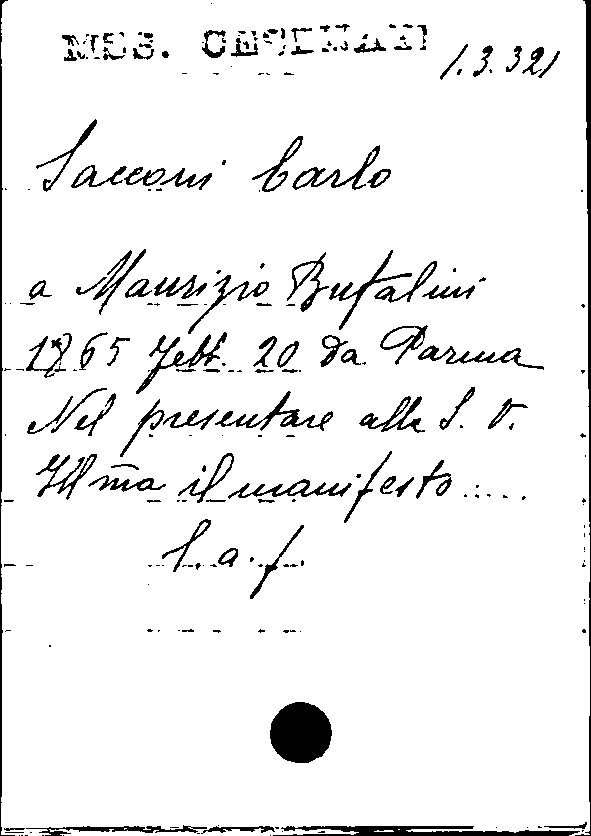 MSS. CESENATI
1.3.321
Sacconi Carlo
a Maurizio Bufalini
1865 Febb. 20 da Parma
Nel presentare alla S. V.
Ill m̄a il manifesto .....
l. a. f.